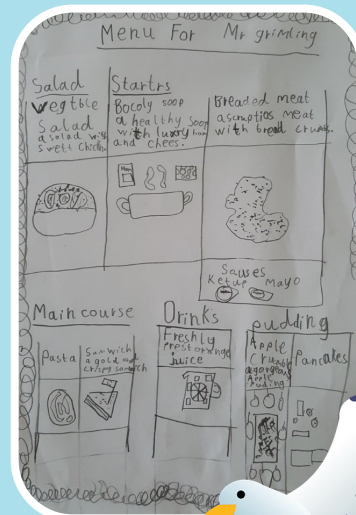 Menu For Mr grimling
Salad
vegtble
Salad
a salad with
swett chicken
Startrs
Bocoly soop
a healthy soop
with luxry ham
and chees.
Breaded meat
a scruptios meat
with bread crumbs.
Sauses
Ketup Mayo
Main course
Pasta
Samwich
a gold and
crispy samwich
Drinks
Freshly
prest orange
juice
pudding
Apple
Crumble
a gorgeous
Apple
puding
Pancakes